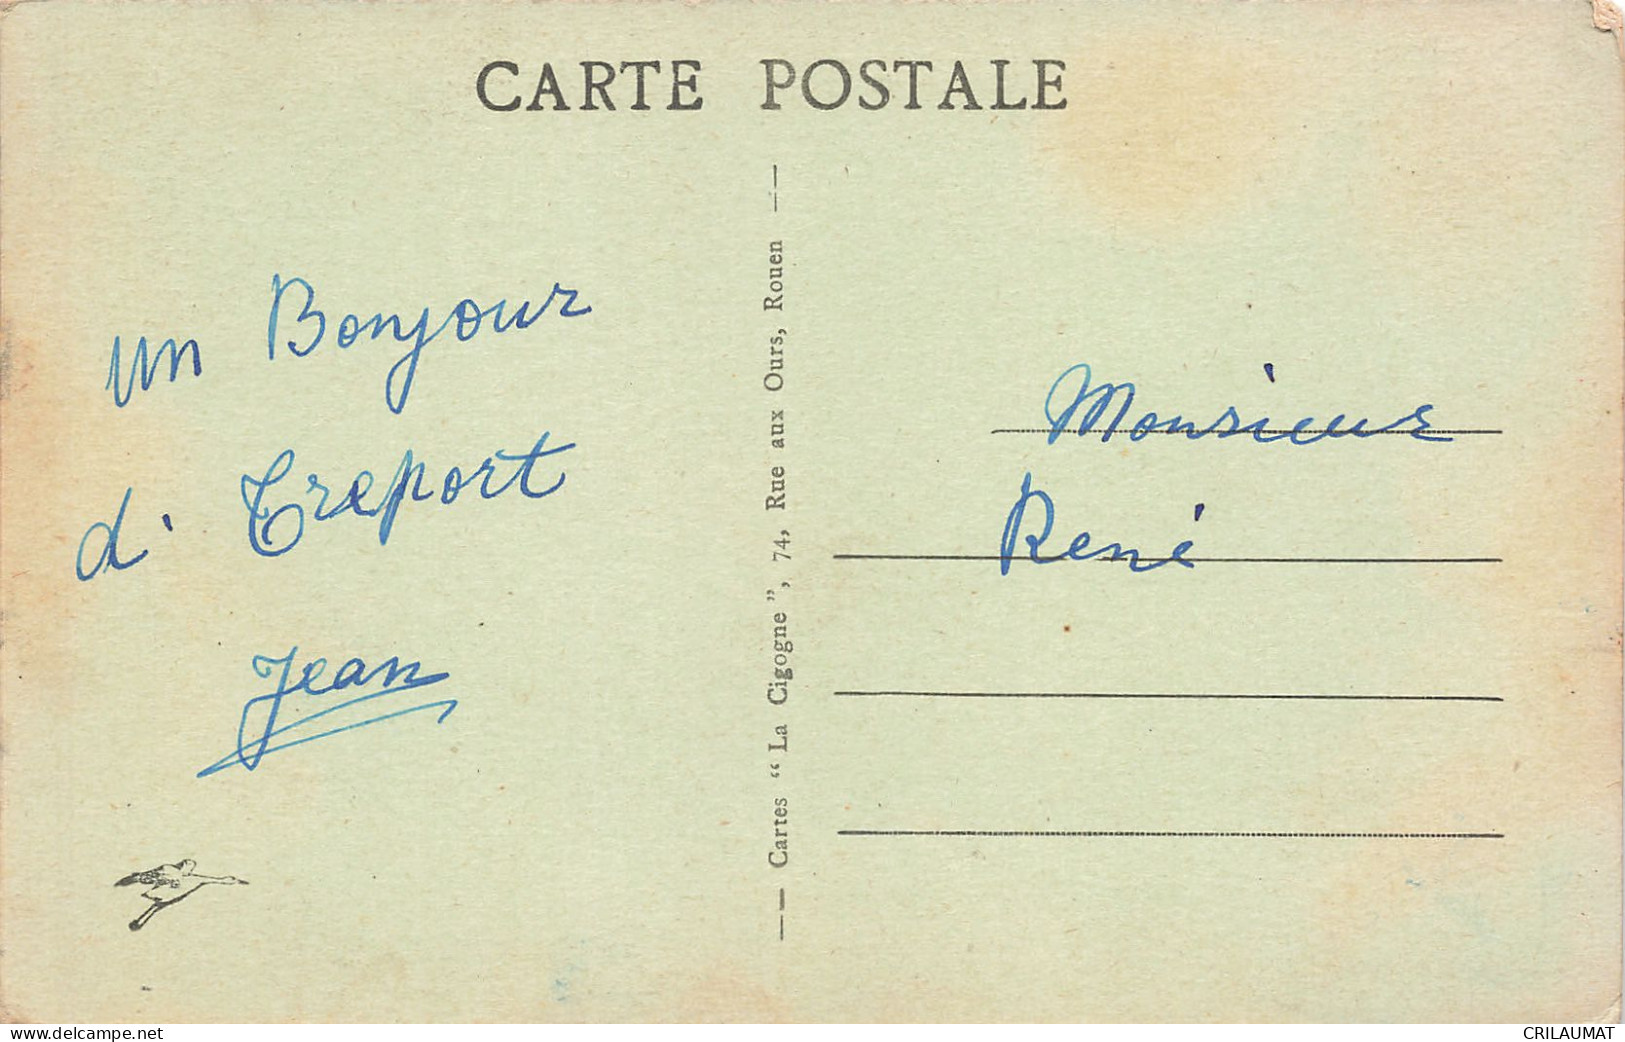 CARTE POSTALE
un Bonjour
d' Treport
Jean
Cartes “ La Cigogne ”, 74, Rue aux Ours, Rouen
Monsieur
René
www.delcampe.net
CRILAUMAT